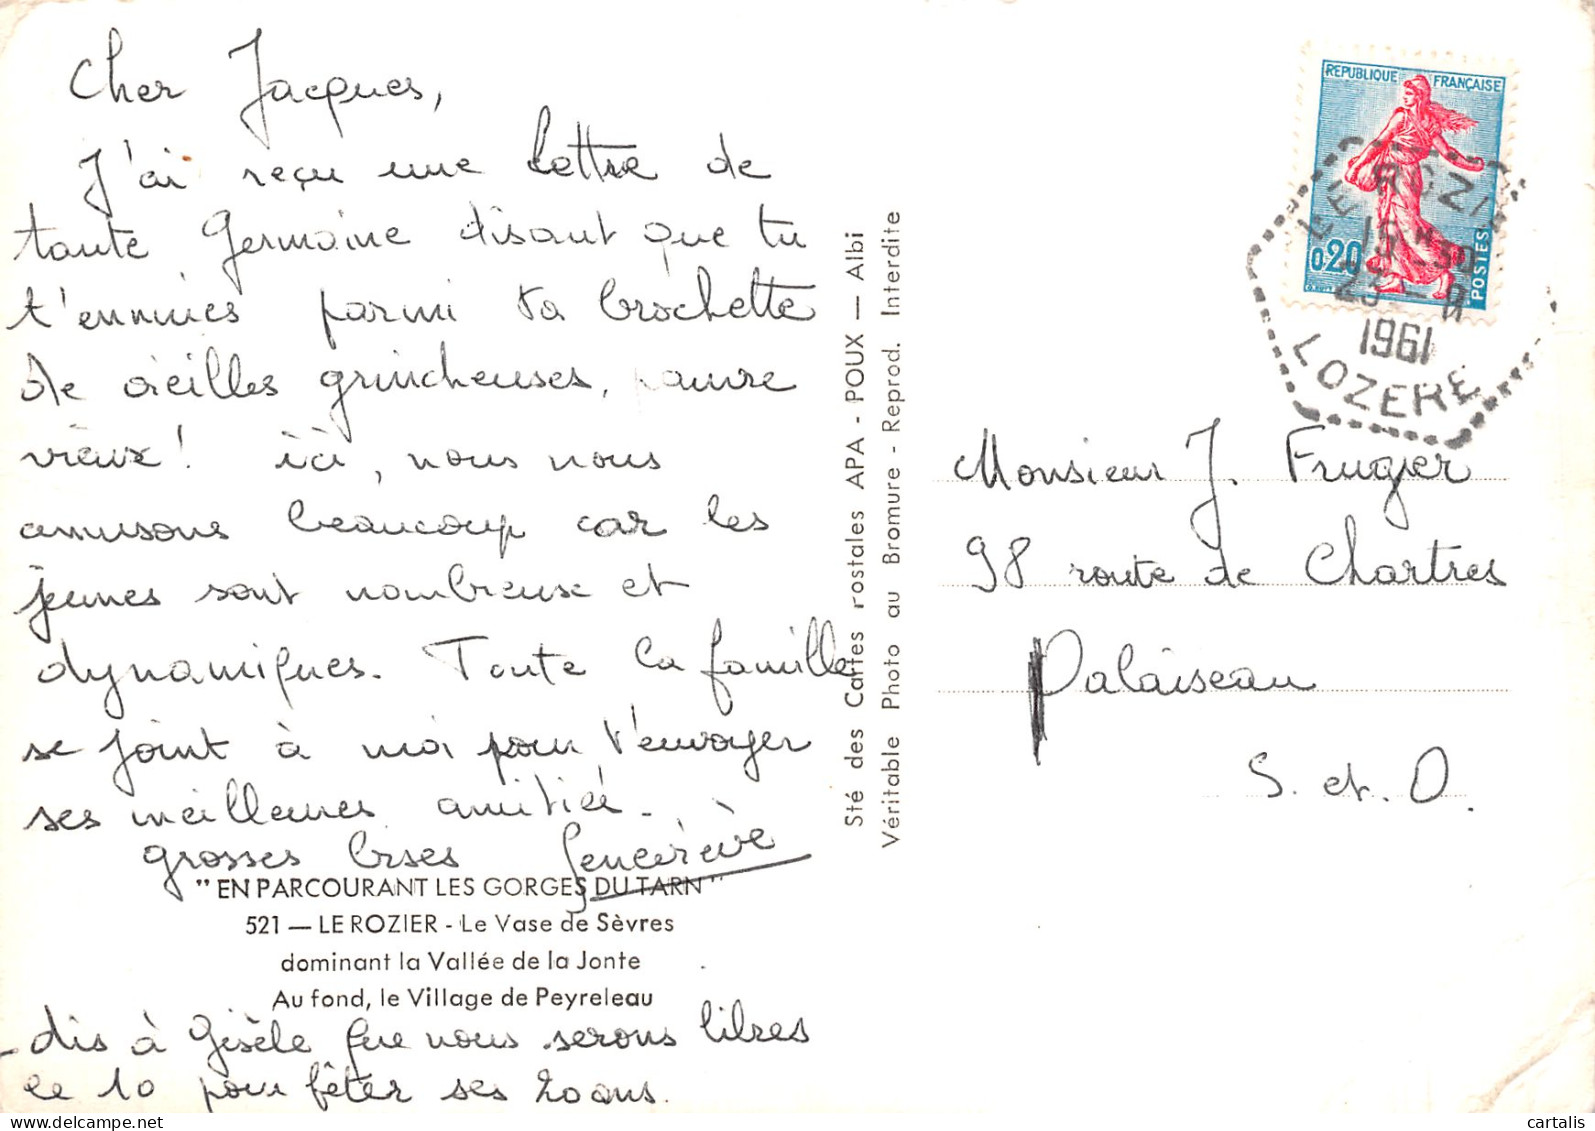 Cher Jacques,
J'ai reçu une lettre de
tante Germaine disant que tu
t'ennuies parmi ta brochette
de vieilles grincheuses, pauvre
vieux! ici, nous nous
amusons beaucoup car les
jeunes sont nombreux et
dynamiques. Toute la famille
se joint à moi pour t'envoyer
ses meilleures amitiés.
grosses bises Geneviève
"EN PARCOURANT LES GORGES DU TARN"
521 — LE ROZIER - Le Vase de Sèvres
dominant la Vallée de la Jonte
Au fond, le Village de Peyreleau
dis à Gisèle que nous serons libres
le 10 pour fêter ses 20 ans.
Sté des Cartes Postales APA - POUX — Albi
Véritable Photo au Bromure - Reprod. Interdite
REPUBLIQUE FRANÇAISE
0,20
POSTES
LE ROZI
15 H 30
23 - 9
1961
LOZERE
Monsieur J. Frugier
98 route de Chartres
Palaiseau
S. et. O.
cartalis